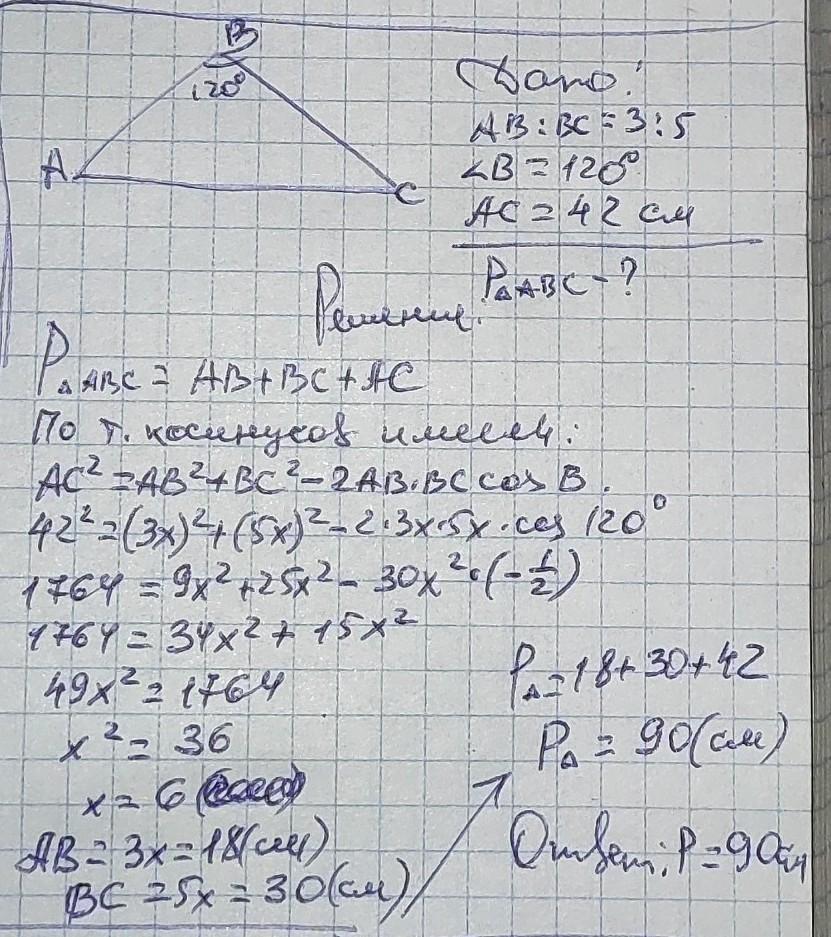 B
120°
A
C
Дано:
AB:BC=3:5
∠B=120°
AC=42 см
P△ABC-?
Решение:
P△ABC=AB+BC+AC
По т. косинусов имеем:
AC²=AB²+BC²-2AB·BC cos B.
42²=(3x)²+(5x)²-2·3x·5x·cos 120°
1764=9x²+25x²-30x²·(-1/2)
1764=34x²+15x²
49x²=1764
x²=36
x=6
AB=3x=18(см)
BC=5x=30(см)
P△=18+30+42
P△=90(см)
Ответ: P=90см